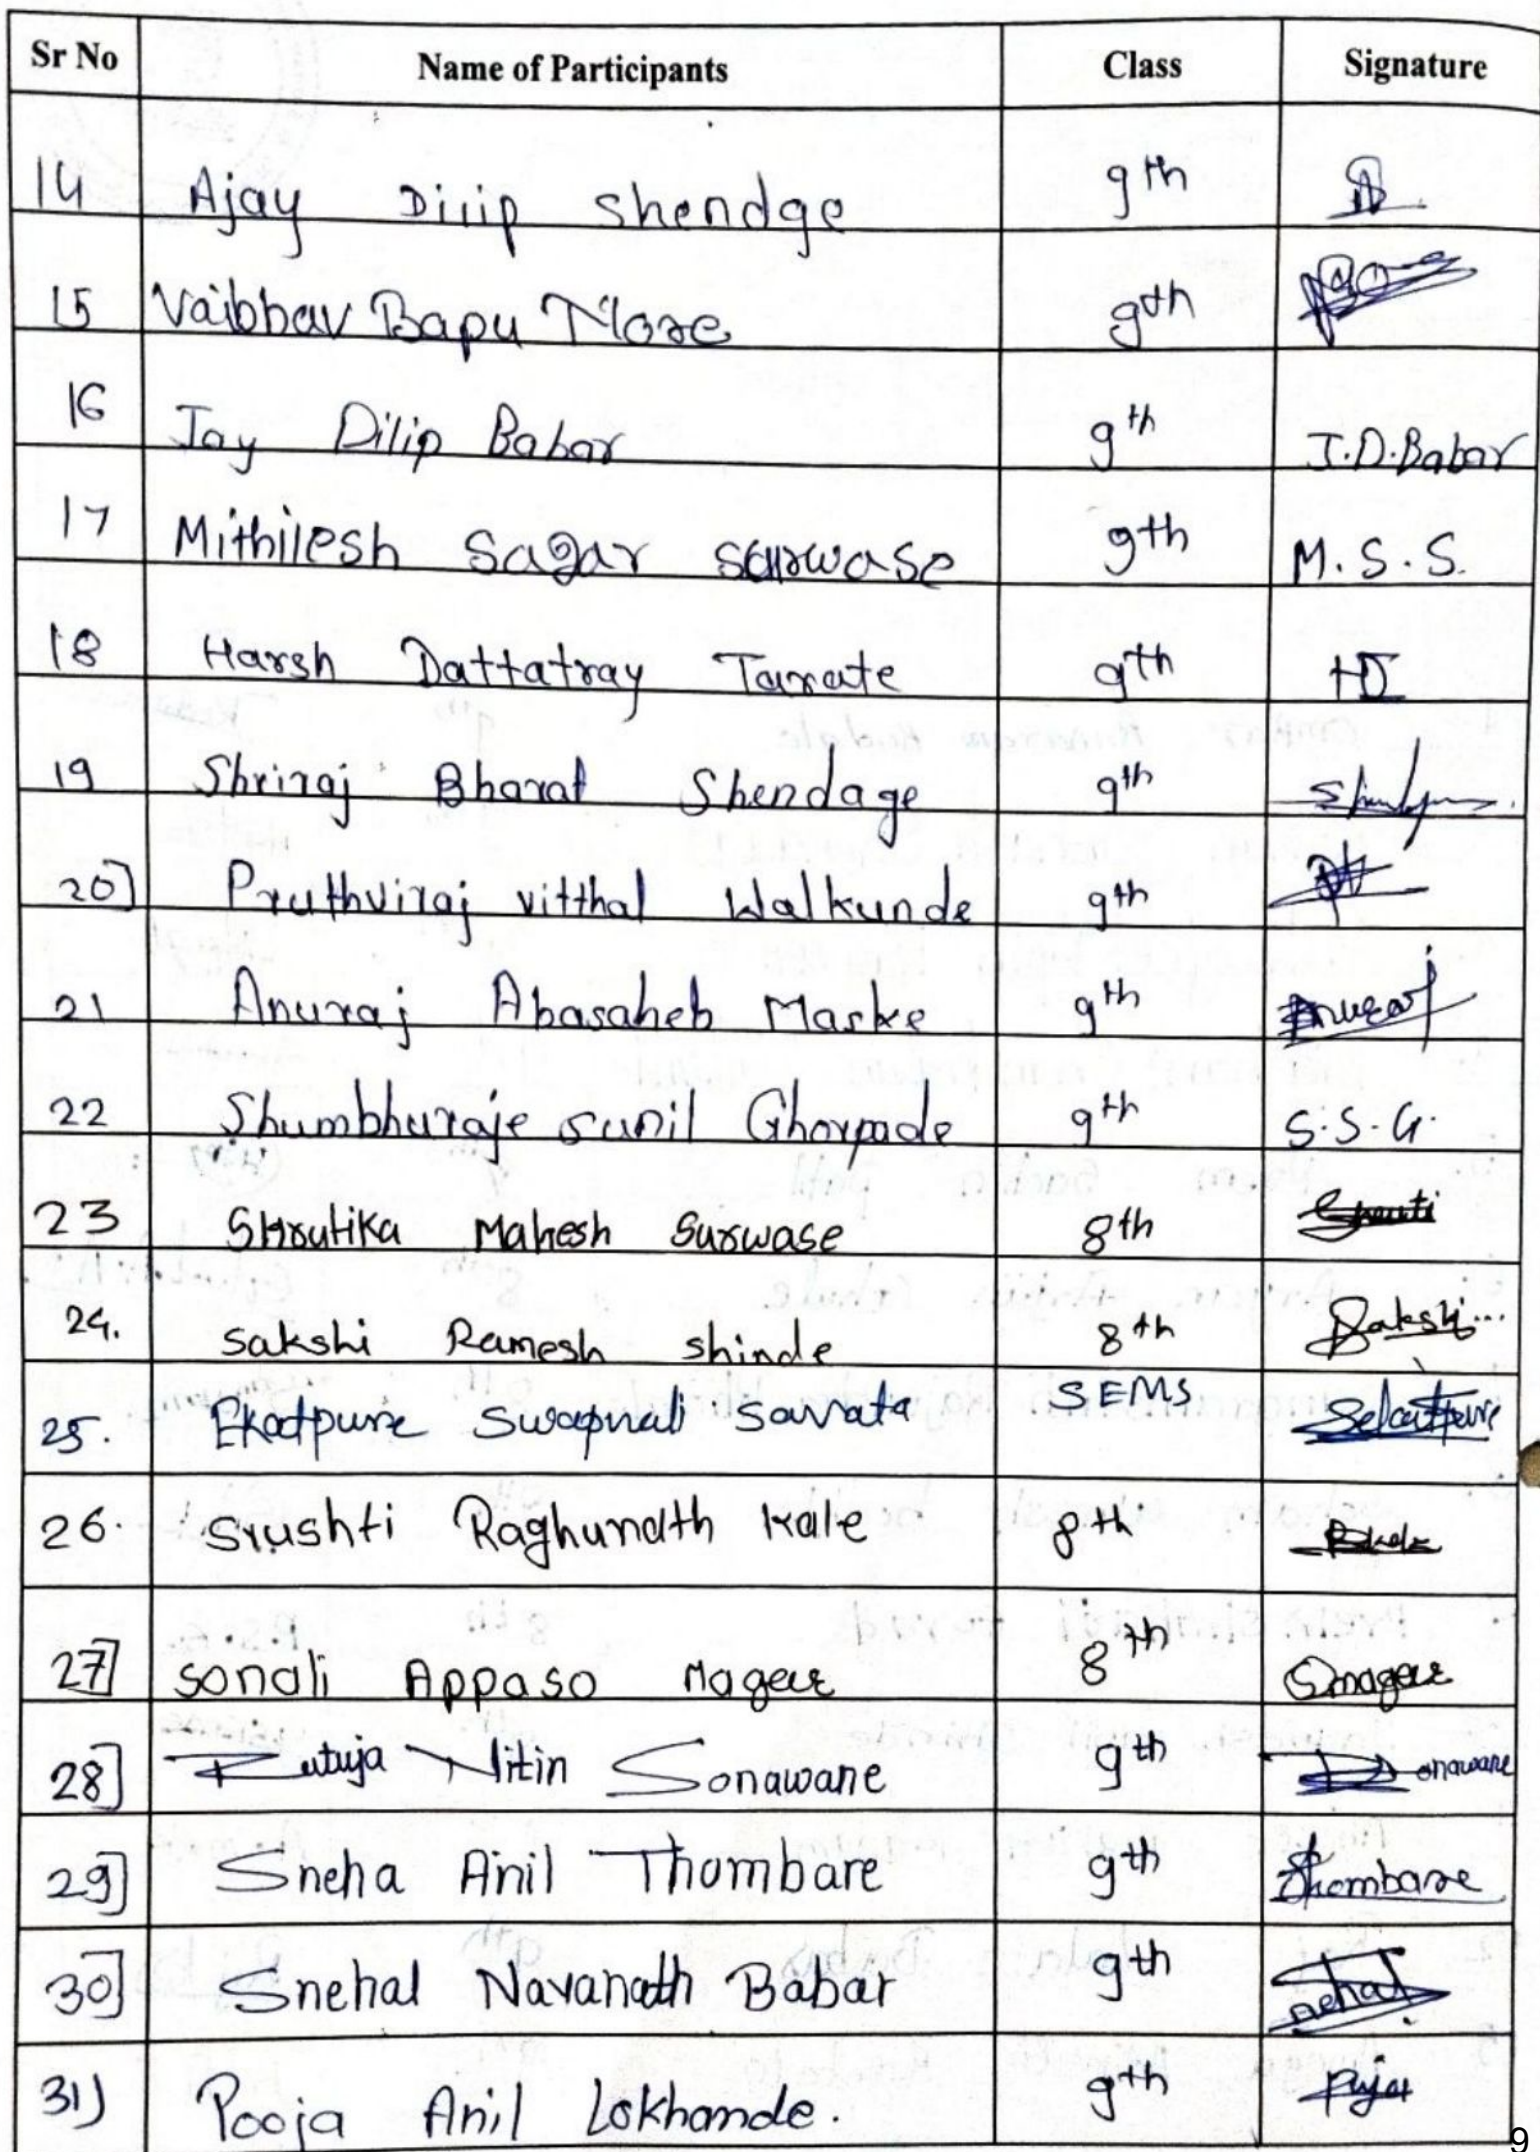 Sr No Name of Participants Class Signature
14 Ajay Dilip Shendge 9th
15 Vaibhav Bapu More 9th
16 Jay Dilip Babar 9th J.D.Babar
17 Mithilesh Sagar Surwase 9th M.S.S.
18 Harsh Dattatray Tarate 9th
19 Shriraj Bharat Shendage 9th
20] Pruthviraj vitthal Walkunde 9th
21 Anuraj Abasaheb Maske 9th Anuraj
22 Shumbhuraje sunil Ghorpade 9th S.S.G.
23 SHrutika Mahesh Surwase 8th
24. Sakshi Ramesh shinde 8th Sakshi...
25. Ekatpure Swapnali Savata SEMS
26. Srushti Raghunath Kale 8th
27] Sonali Appaso Nagear 8th
28] Rutuja Nitin Sonawane 9th Sonawane
29] Sneha Anil Thombare 9th Thombare
30] Snehal Navanath Babar 9th Snehal
31) Pooja Anil Lokhande. 9th Puja
9